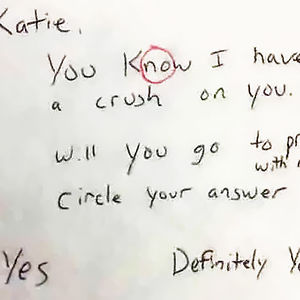 Katie,
You Know I have
a crush on you.
Will you go to
with
Circle your answer
Yes Definitely